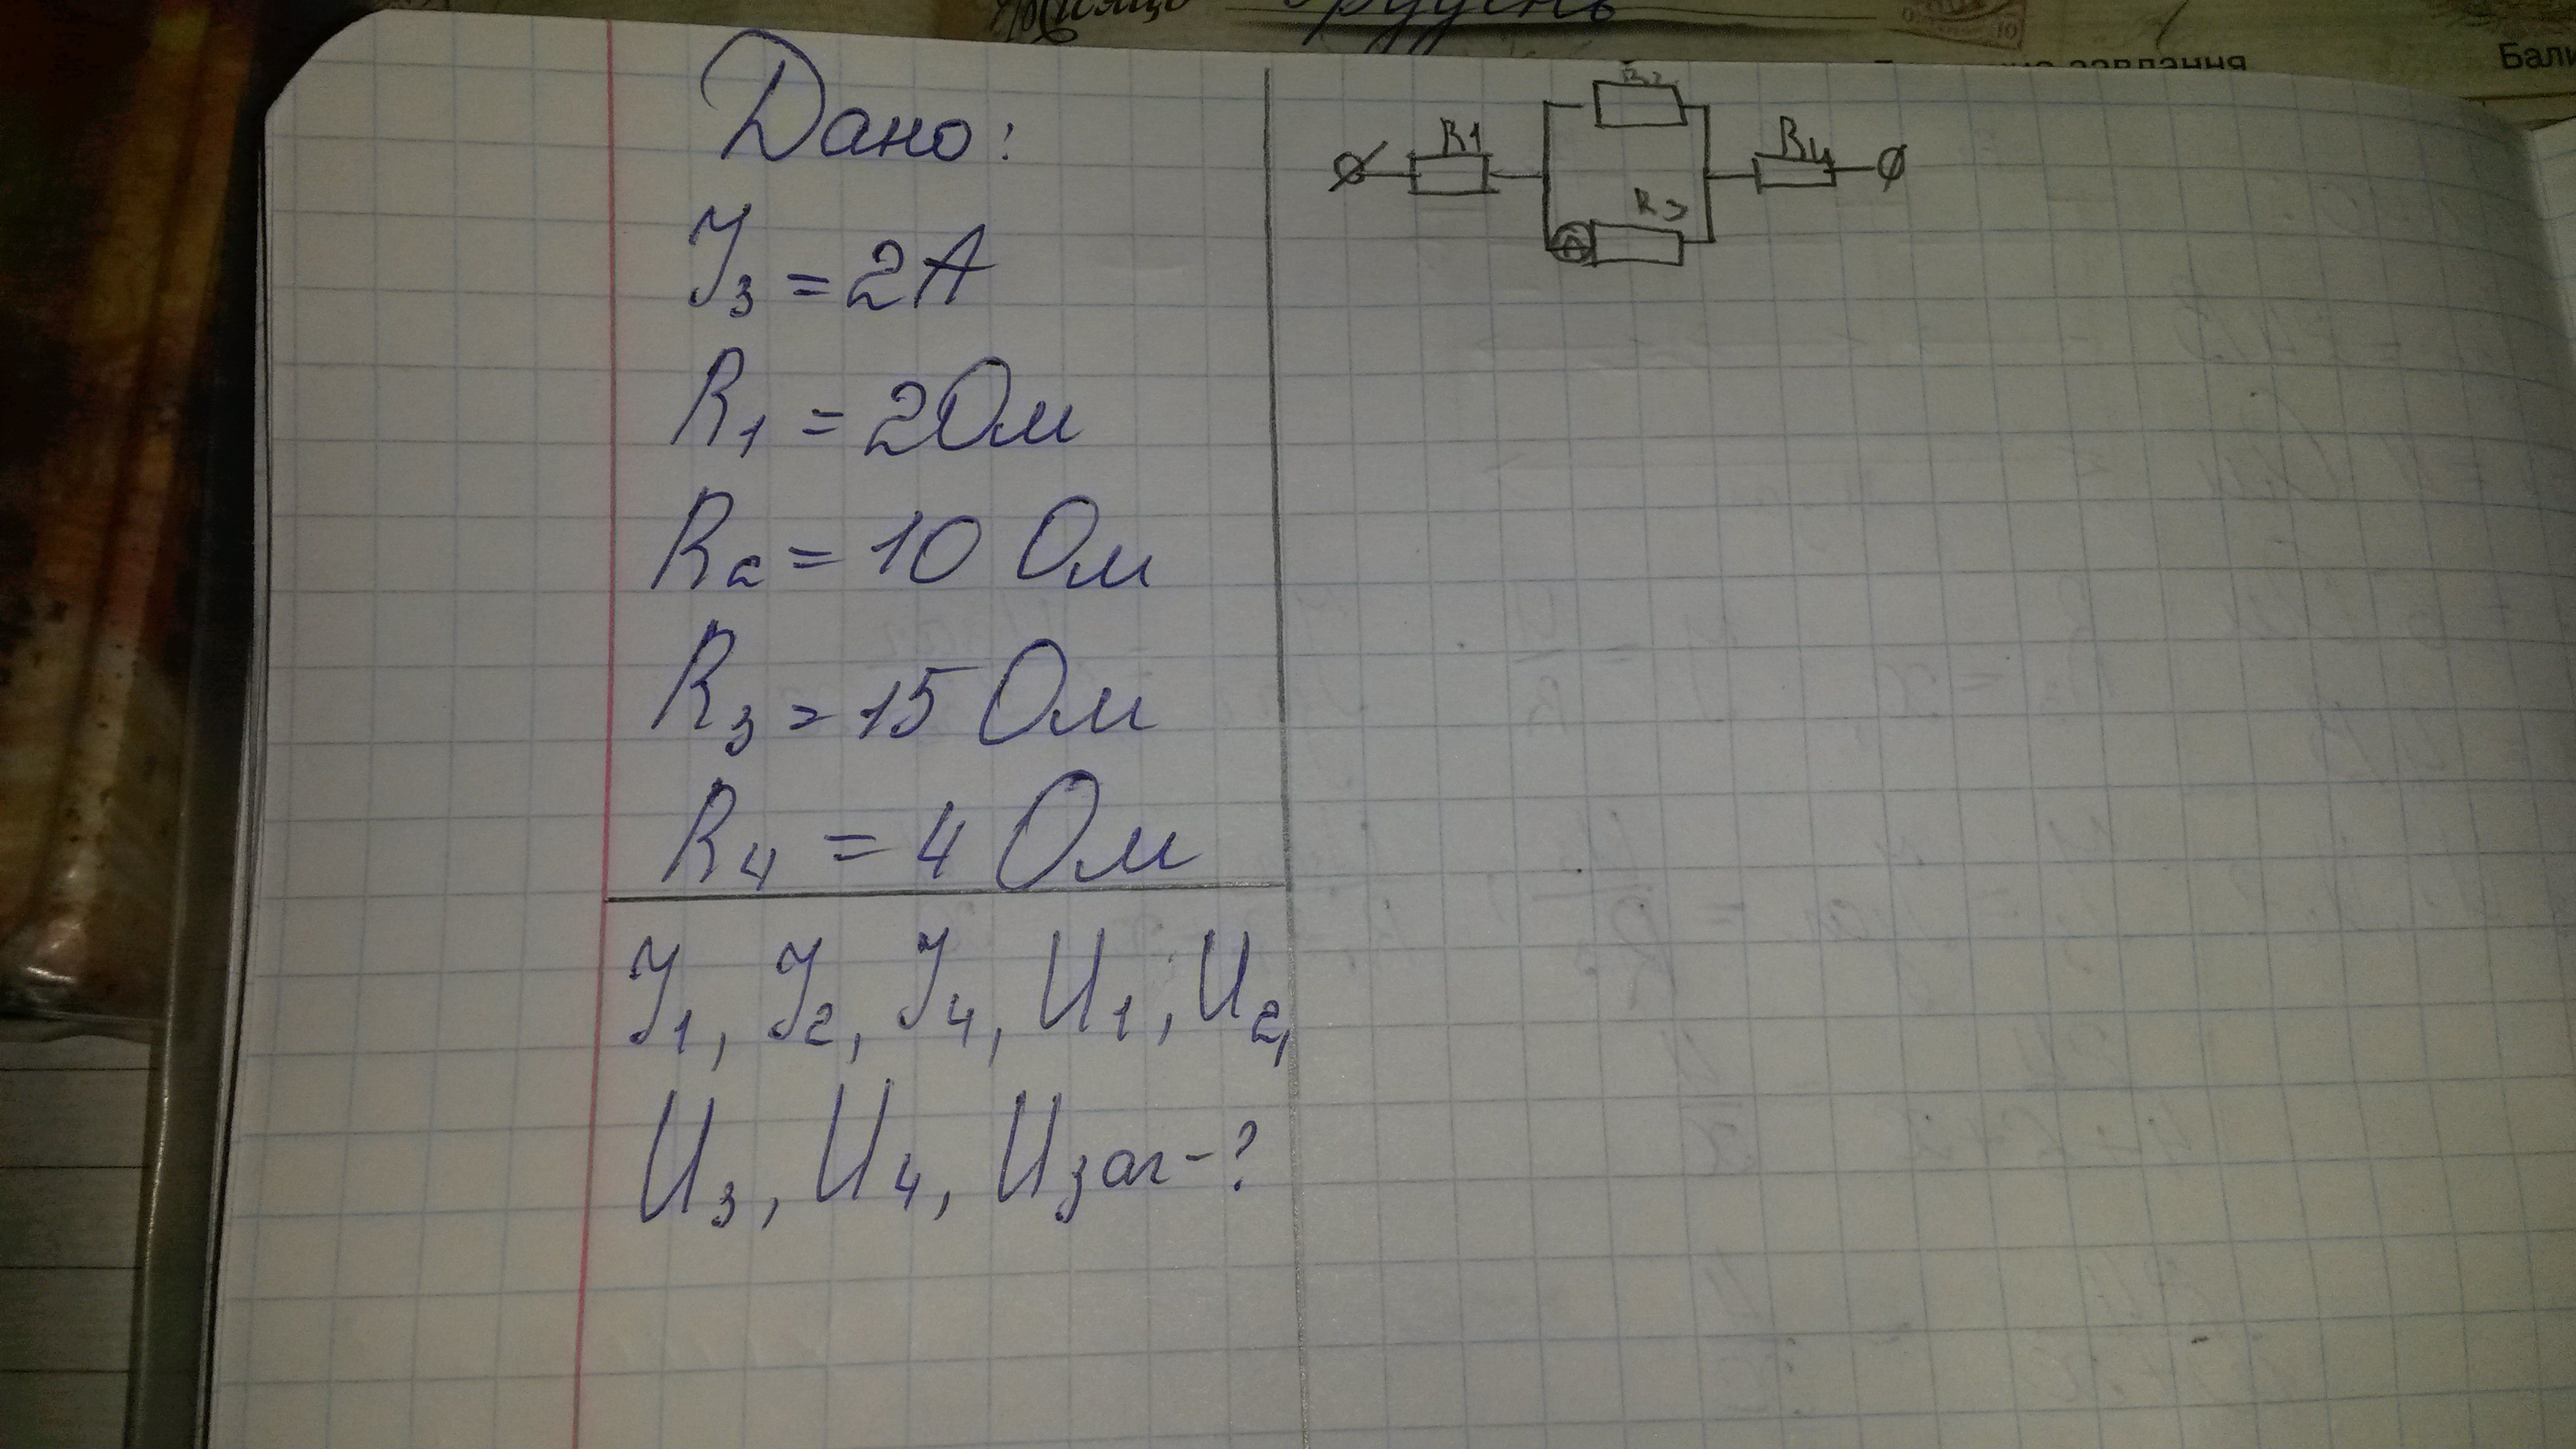 грудень
завдання
Бали
Дано:
I₃ = 2А
R₁ = 2Ом
R₂ = 10 Ом
R₃ = 15 Ом
R₄ = 4 Ом
I₁, I₂, I₄, U₁, U₂,
U₃, U₄, Uзаг-?
R2
R1
R4
R3
A